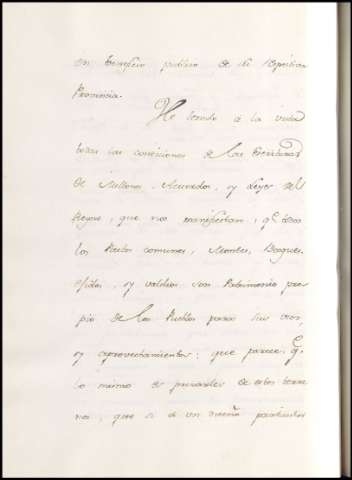 en beneficio publico de la repetida
Provincia.
He tenido a la vista
todas las condiciones de las Escrituras
de Millones, Acuerdos, y Leyes del
Reyno, que nos manifiestan, qe. todos
los Pastos comunes, Montes, Bosques
exidos, y valdios son Patrimonio pro
pio de los Pueblos para sus usos,
y aprovechamientos: que parece qe.
lo mismo es privarles de estos terre
nos, que si a un dueño particular